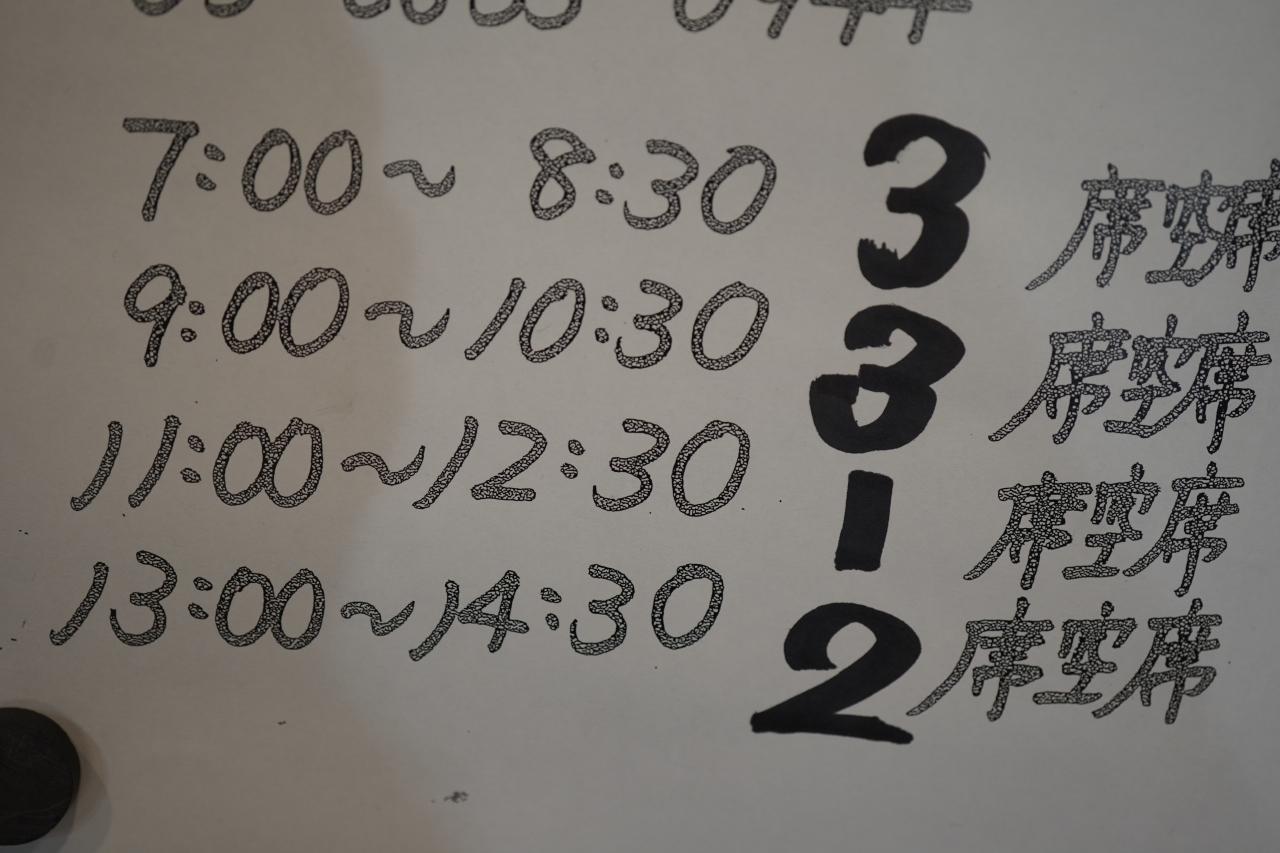 7:00～ 8:30 3 席空席
9:00～10:30 3 席空席
11:00～12:30 1 席空席
13:00～14:30 2 席空席